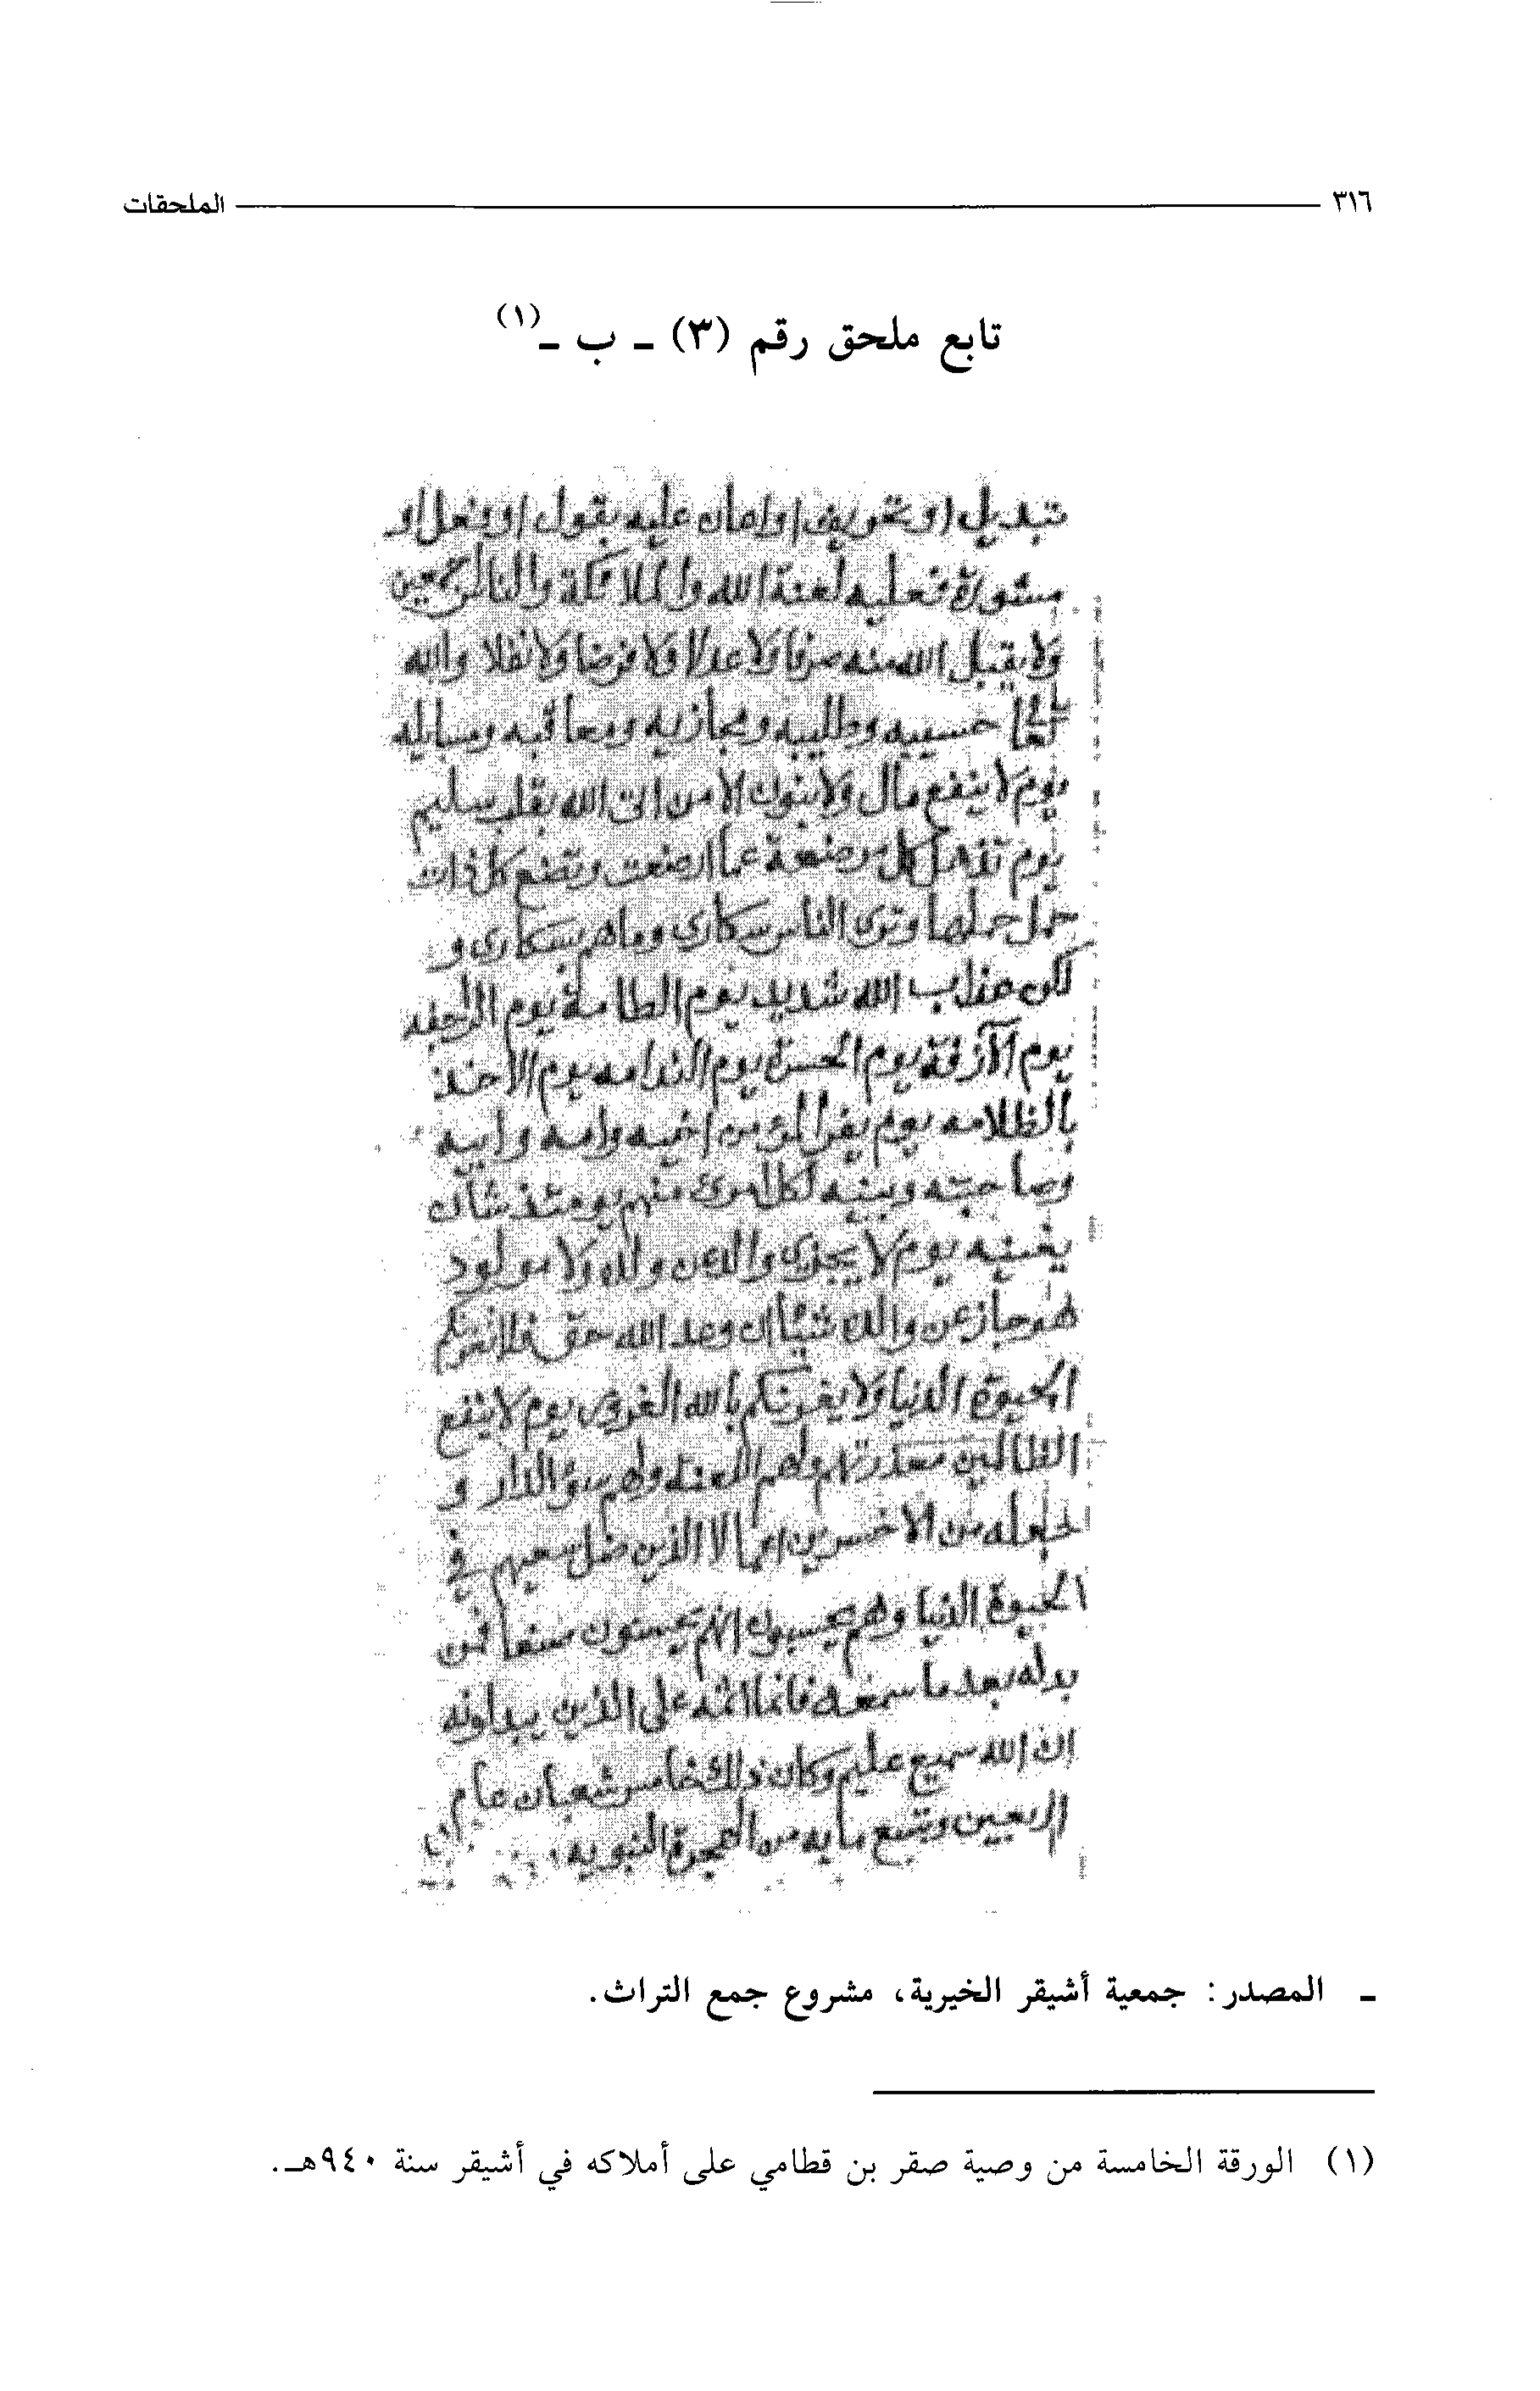 ٣١٦ الملحقات
تابع ملحق رقم (٣) ـ ب ـ(١)
تبديل او تحريف او اعان عليه بقول او بفعل او
مشورة فعليه لعنة الله والملائكة والناس اجمعين
ولا يقبل الله منه صرفا ولا عدلا ولا فرضا ولا نفلا والله
تعالى حسيبه وطليبه ومجازيه ومعاقبه وسايله
يوم لا ينفع مال ولا بنون الا من اتى الله بقلب سليم
يوم تذهل كل مرضعة عما ارضعت وتضع كل ذات
حمل حملها وترى الناس سكارى وما هم بسكارى و
لكن عذاب الله شديد يوم الطامة يوم الراجفه
يوم الآزفة يوم الحسرة يوم الندامه يوم الاخذ
بالظلامه يوم يفر المرء من اخيه وامه وابيه
وصاحبته وبنيه لكل امرئ منهم يومئذ شان
يغنيه يوم لا يجزى والد عن ولده ولا مولود
هو جاز عن والده شيئا ان وعد الله حق فلا تغرنكم
الحيوة الدنيا ولا يغرنكم بالله الغرور يوم لا ينفع
الظالمين معذرتهم ولهم اللعنه ولهم سوء الدار و
اجعله من الاخسرين اعمالا الذين ضل سعيهم في
الحيوة الدنيا وهم يحسبون انهم يحسنون صنعا فمن
بدله بعد ما سمعه فانما اثمه على الذين يبدلونه
ان الله سميع عليم وكان ذلك خامس شعبان عام
اربعين وتسع مايه من الهجرة النبويه
ـ المصدر: جمعية أشيقر الخيرية، مشروع جمع التراث.
(١) الورقة الخامسة من وصية صقر بن قطامي على أملاكه في أشيقر سنة ٩٤٠هـ.